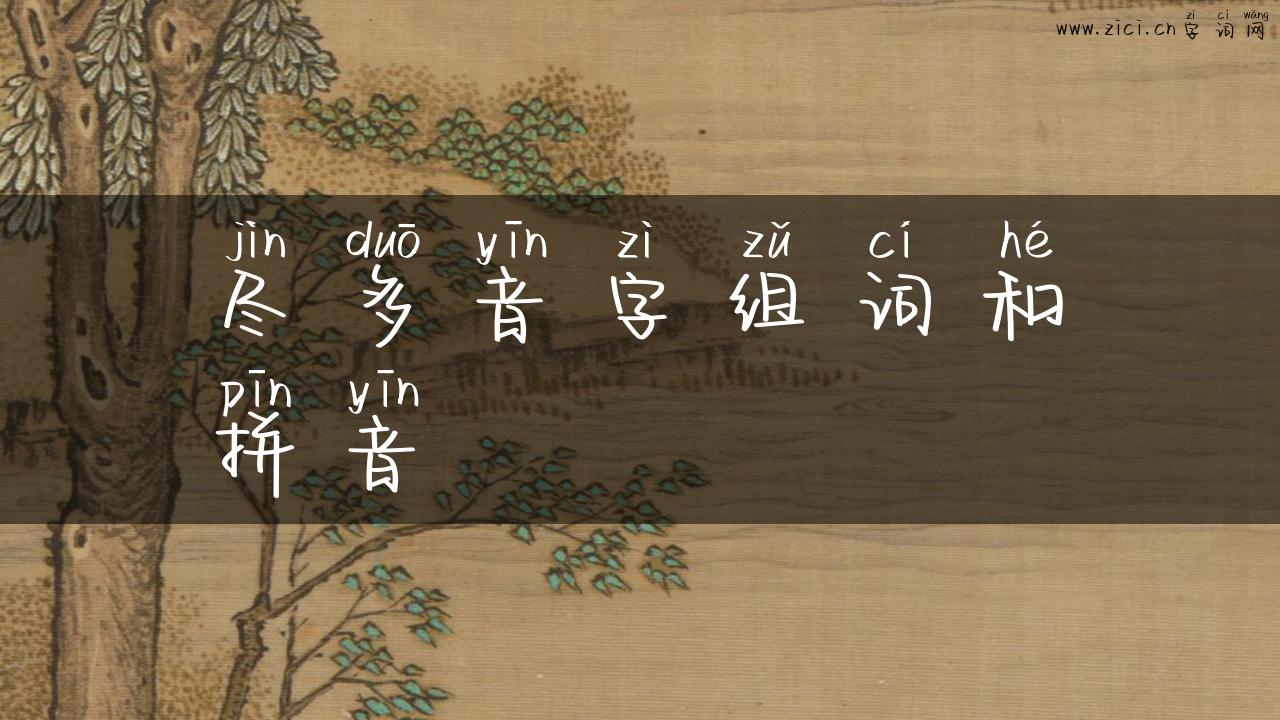 zì cí wǎng
www.zici.cn 字词网
jìn duō yīn zì zǔ cí hé
尽 多 音 字 组 词 和
pīn yīn
拼 音